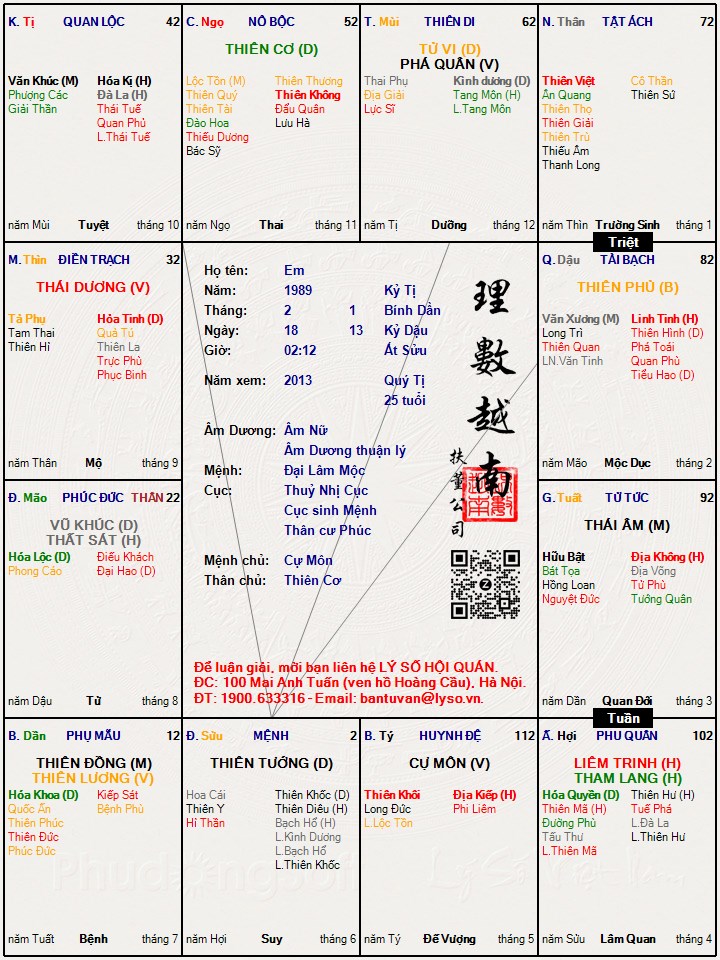 K. Tị QUAN LỘC 42
Văn Khúc (M) Hóa Kị (H)
Phượng Các Đà La (H)
Giải Thần Thái Tuế
Quan Phủ
L.Thái Tuế
năm Mùi Tuyệt tháng 10
C. Ngọ NÔ BỘC 52
THIÊN CƠ (D)
Lộc Tồn (M) Thiên Thương
Thiên Quý Thiên Không
Thiên Tài Đẩu Quân
Đào Hoa Lưu Hà
Thiếu Dương
Bác Sỹ
năm Ngọ Thai tháng 11
T. Mùi THIÊN DI 62
TỬ VI (D)
PHÁ QUÂN (V)
Thai Phụ Kình dương (D)
Địa Giải Tang Môn (H)
Lực Sĩ L.Tang Môn
năm Tị Dưỡng tháng 12
N. Thân TẬT ÁCH 72
Thiên Việt Cô Thần
Ân Quang Thiên Sứ
Thiên Thọ
Thiên Giải
Thiên Trù
Thiếu Âm
Thanh Long
năm Thìn Trường Sinh tháng 1
Triệt
M. Thìn ĐIỀN TRẠCH 32
THÁI DƯƠNG (V)
Tả Phụ Hỏa Tinh (D)
Tam Thai Quả Tú
Thiên Hỉ Thiên La
Trực Phù
Phục Binh
năm Thân Mộ tháng 9
Họ tên: Em
Năm: 1989 Kỷ Tị
Tháng: 2 1 Bính Dần
Ngày: 18 13 Kỷ Dậu
Giờ: 02:12 Ất Sửu
Năm xem: 2013 Quý Tị
25 tuổi
Âm Dương: Âm Nữ
Âm Dương thuận lý
Mệnh: Đại Lâm Mộc
Cục: Thuỷ Nhị Cục
Cục sinh Mệnh
Thân cư Phúc
Mệnh chủ: Cự Môn
Thân chủ: Thiên Cơ
理數越南
扶董公司
Để luận giải, mời bạn liên hệ LÝ SỐ HỘI QUÁN.
ĐC: 100 Mai Anh Tuấn (ven hồ Hoàng Cầu), Hà Nội.
ĐT: 1900.633316 - Email: bantuvan@lyso.vn.
Q. Dậu TÀI BẠCH 82
THIÊN PHỦ (B)
Văn Xương (M) Linh Tinh (H)
Long Trì Thiên Hình (D)
Thiên Quan Phá Toái
LN.Văn Tinh Quan Phù
Tiểu Hao (D)
năm Mão Mộc Dục tháng 2
Đ. Mão PHÚC ĐỨC THÂN 22
VŨ KHÚC (D)
THẤT SÁT (H)
Hóa Lộc (D) Điếu Khách
Phong Cáo Đại Hao (D)
năm Dậu Tử tháng 8
G. Tuất TỬ TỨC 92
THÁI ÂM (M)
Hữu Bật Địa Không (H)
Bát Tọa Địa Võng
Hồng Loan Tử Phù
Nguyệt Đức Tướng Quân
năm Dần Quan Đới tháng 3
Tuần
B. Dần PHỤ MẪU 12
THIÊN ĐỒNG (M)
THIÊN LƯƠNG (V)
Hóa Khoa (D) Kiếp Sát
Quốc Ấn Bệnh Phù
Thiên Phúc
Thiên Đức
Phúc Đức
năm Tuất Bệnh tháng 7
Đ. Sửu MỆNH 2
THIÊN TƯỚNG (D)
Hoa Cái Thiên Khốc (D)
Thiên Y Thiên Diêu (H)
Hỉ Thần Bạch Hổ (H)
L.Kình Dương
L.Bạch Hổ
L.Thiên Khốc
năm Hợi Suy tháng 6
B. Tý HUYNH ĐỆ 112
CỰ MÔN (V)
Thiên Khôi Địa Kiếp (H)
Long Đức Phi Liêm
L.Lộc Tồn
năm Tý Đế Vượng tháng 5
Ấ. Hợi PHU QUÂN 102
LIÊM TRINH (H)
THAM LANG (H)
Hóa Quyền (D) Thiên Hư (H)
Thiên Mã (H) Tuế Phá
Đường Phù L.Đà La
Tấu Thư L.Thiên Hư
L.Thiên Mã
năm Sửu Lâm Quan tháng 4